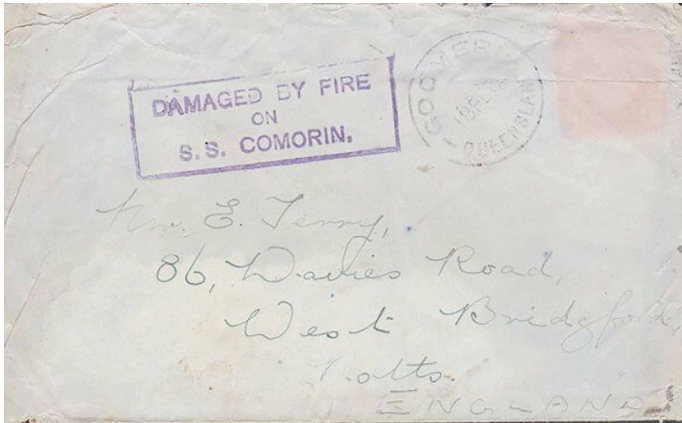 DAMAGED BY FIRE
ON
S.S. COMORIN.
GOOMERI
QUEENSLAND
Mr. E. Terry,
86, Davies Road,
West Bridgford,
Notts.
ENGLAND